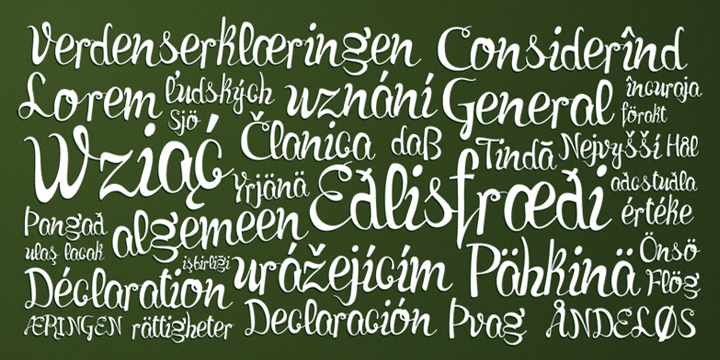 Verdenserklæringen Considerînd
Lorem ľudských uznání General încuraja
Sjö förakt
Wziąć Članica daß Tindă Nejvyšší Hål
Yrjänä Eðlisfræði aðstuðla
Pangað algemeen értéke
ulaş lacak işbirliği urážejícím Pähkinä Önsö
Déclaration Flög
ÆRINGEN rättigheter Declaración Pvag ÅNDELØS